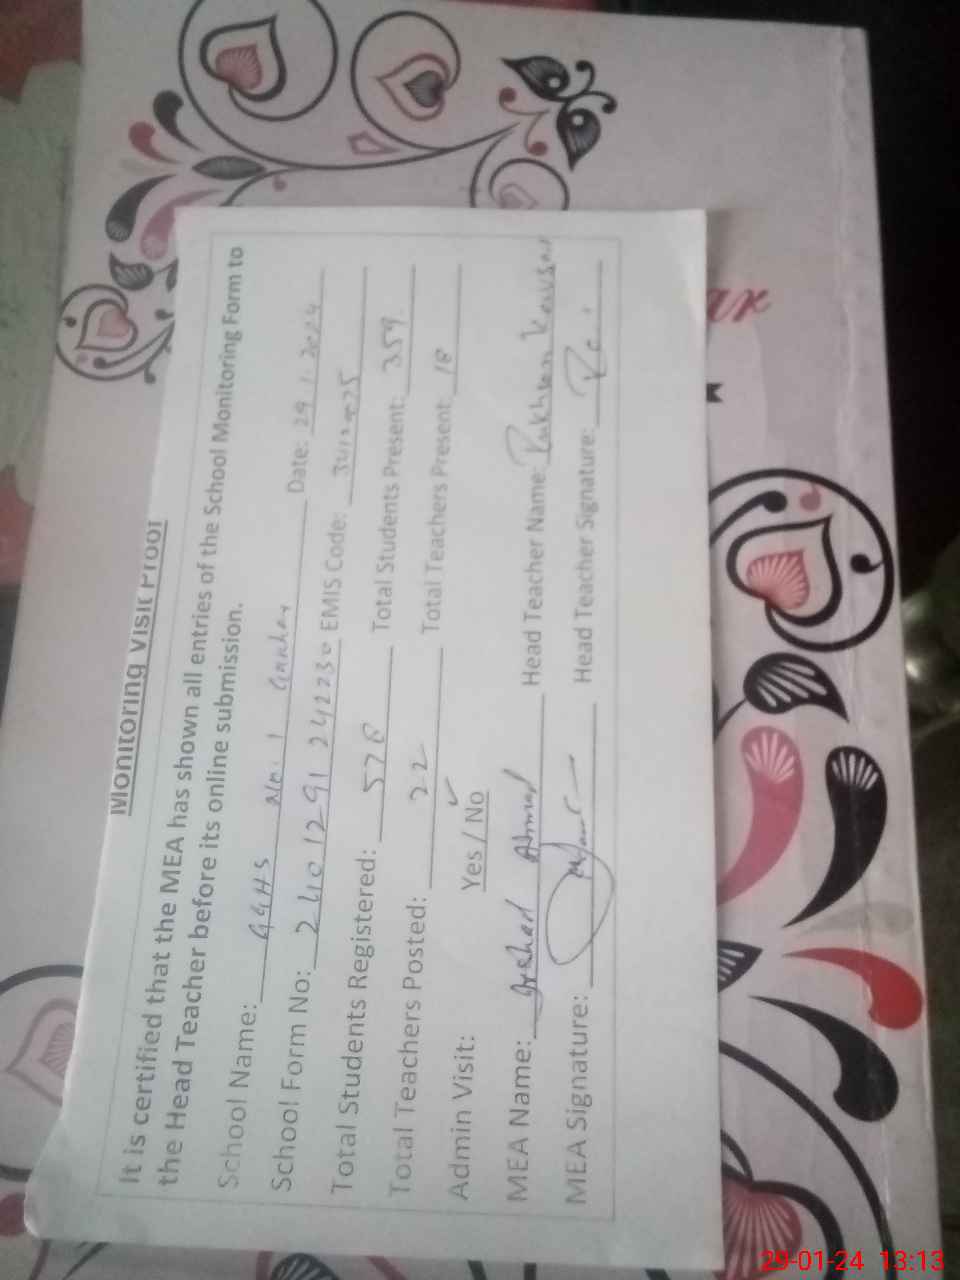 Monitoring Visit Proof
It is certified that the MEA has shown all entries of the School Monitoring Form to
the Head Teacher before its online submission.
School Name: GGHS No. 1 Date: 29.1.2024
School Form No: EMIS Code:
Total Students Registered: 576 Total Students Present: 359
Total Teachers Posted: 22 Total Teachers Present: 18
Admin Visit: Yes / No ✓
MEA Name: Arshad Ahmad Head Teacher Name: Rukhsan Kausar
MEA Signature: Head Teacher Signature:
ar
29-01-24 13:13